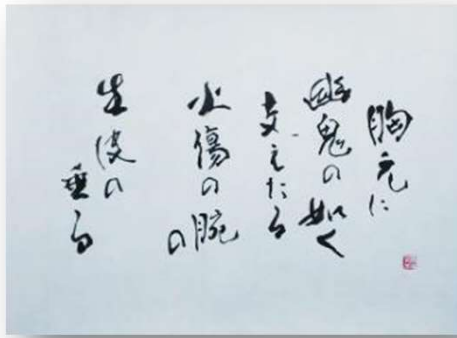 胸元に
幽鬼の如く
支えたる
火傷の腕の
生皮の
垂る